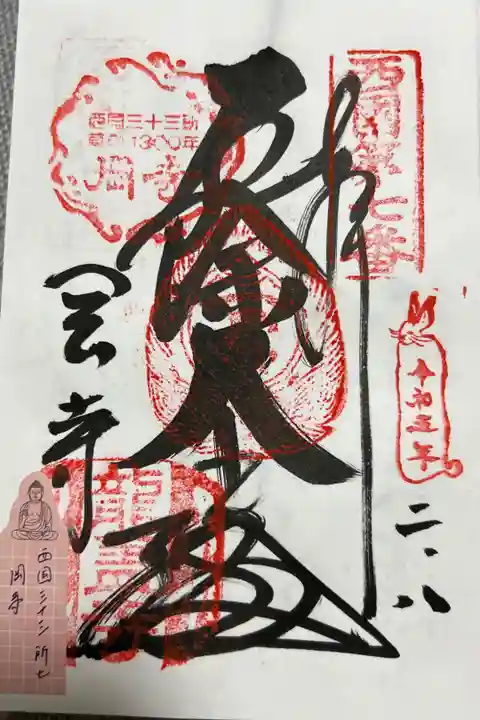 西国第七番
奉拝
令和五年
二、八
西国三十三所
草創1300年
岡寺
岡寺
龍蓋寺
西国三十三所 七
岡寺